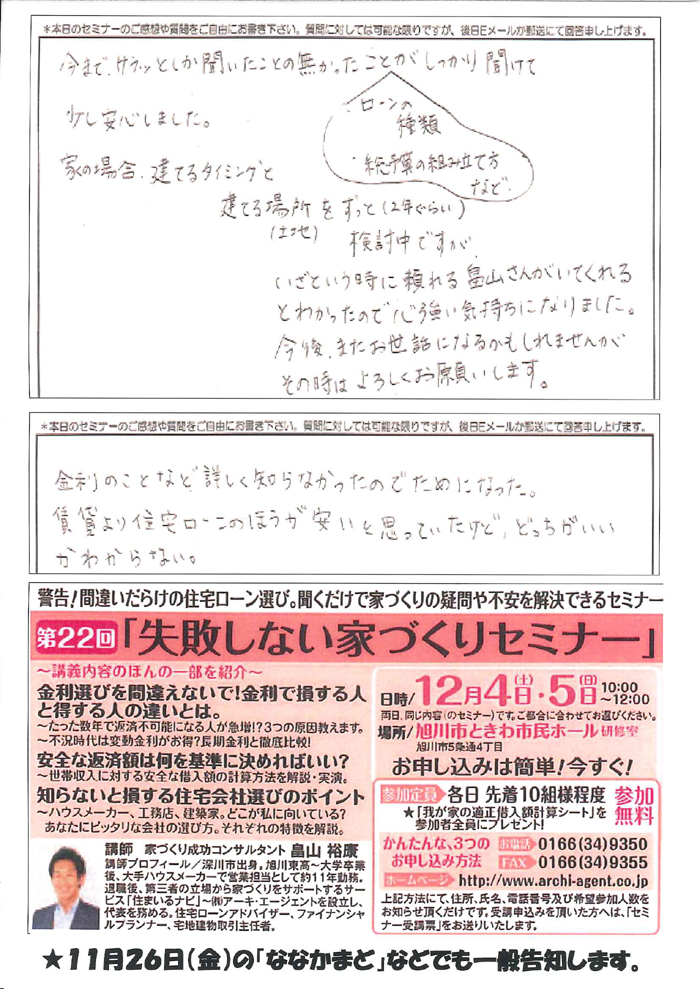 *本日のセミナーのご感想や質問をご自由にお書き下さい。質問に対しては可能な限りですが、後日Eメールか郵送にて回答申し上げます。
今まで、サラッとしか聞いたことの無かったことがしっかり聞けて
少し安心しました。
・ローンの
種類
・総予算の組み立て方
など
家の場合、建てるタイミングと
建てる場所をずっと(2年ぐらい)
(土地)
検討中ですが
いざという時に頼れる畠山さんがいてくれる
とわかったので心強い気持ちになりました。
今後、またお世話になるかもしれませんが
その時はよろしくお願いします。
*本日のセミナーのご感想や質問をご自由にお書き下さい。質問に対しては可能な限りですが、後日Eメールか郵送にて回答申し上げます。
金利のことなど、詳しく知らなかったのでためになった。
賃貸より住宅ローンのほうが安いと思っていたけど、どっちがいい
かわからない。
警告!間違いだらけの住宅ローン選び。聞くだけで家づくりの疑問や不安を解決できるセミナー
第22回「失敗しない家づくりセミナー」
〜講義内容のほんの一部を紹介〜
金利選びを間違えないで!金利で損する人
と得する人の違いとは。
〜たった数年で返済不可能になる人が急増!?3つの原因教えます。
〜不況時代は変動金利がお得?長期金利と徹底比較!
安全な返済額は何を基準に決めればいい?
〜世帯収入に対する安全な借入額の計算方法を解説・実演。
知らないと損する住宅会社選びのポイント
〜ハウスメーカー、工務店、建築家。どこが私に向いている?
あなたにピッタリな会社の選び方。それぞれの特徴を解説。
講師 家づくり成功コンサルタント 畠山 裕康
講師プロフィール/深川市出身。旭川東高〜大学卒業
後、大手ハウスメーカーで営業担当として約11年勤務。
退職後、第三者の立場から家づくりをサポートするサー
ビス「住まいるナビ」〜㈱アーキ・エージェントを設立し、
代表を務める。住宅ローンアドバイザー、ファイナンシャ
ルプランナー、宅地建物取引主任者。
日時/12月4日(土)・5日(日)10:00〜12:00
両日、同じ内容(のセミナー)です。ご都合に合わせてお選びください。
場所/旭川市ときわ市民ホール 研修室
旭川市5条通4丁目
お申し込みは簡単!今すぐ!
参加定員 各日 先着10組様程度 参加無料
★「我が家の適正借入額計算シート」を
参加者全員にプレゼント!
かんたんな、3つの
お申し込み方法
お電話 0166(34)9350
FAX 0166(34)9355
ホームページ http://www.archi-agent.co.jp
上記方法にて、住所、氏名、電話番号及び希望参加人数を
お知らせ頂くだけです。受講申込みを頂いた方へは、「セミ
ナー受講票」をお送りいたします。
★11月26日(金)の「ななかまど」などでも一般告知します。